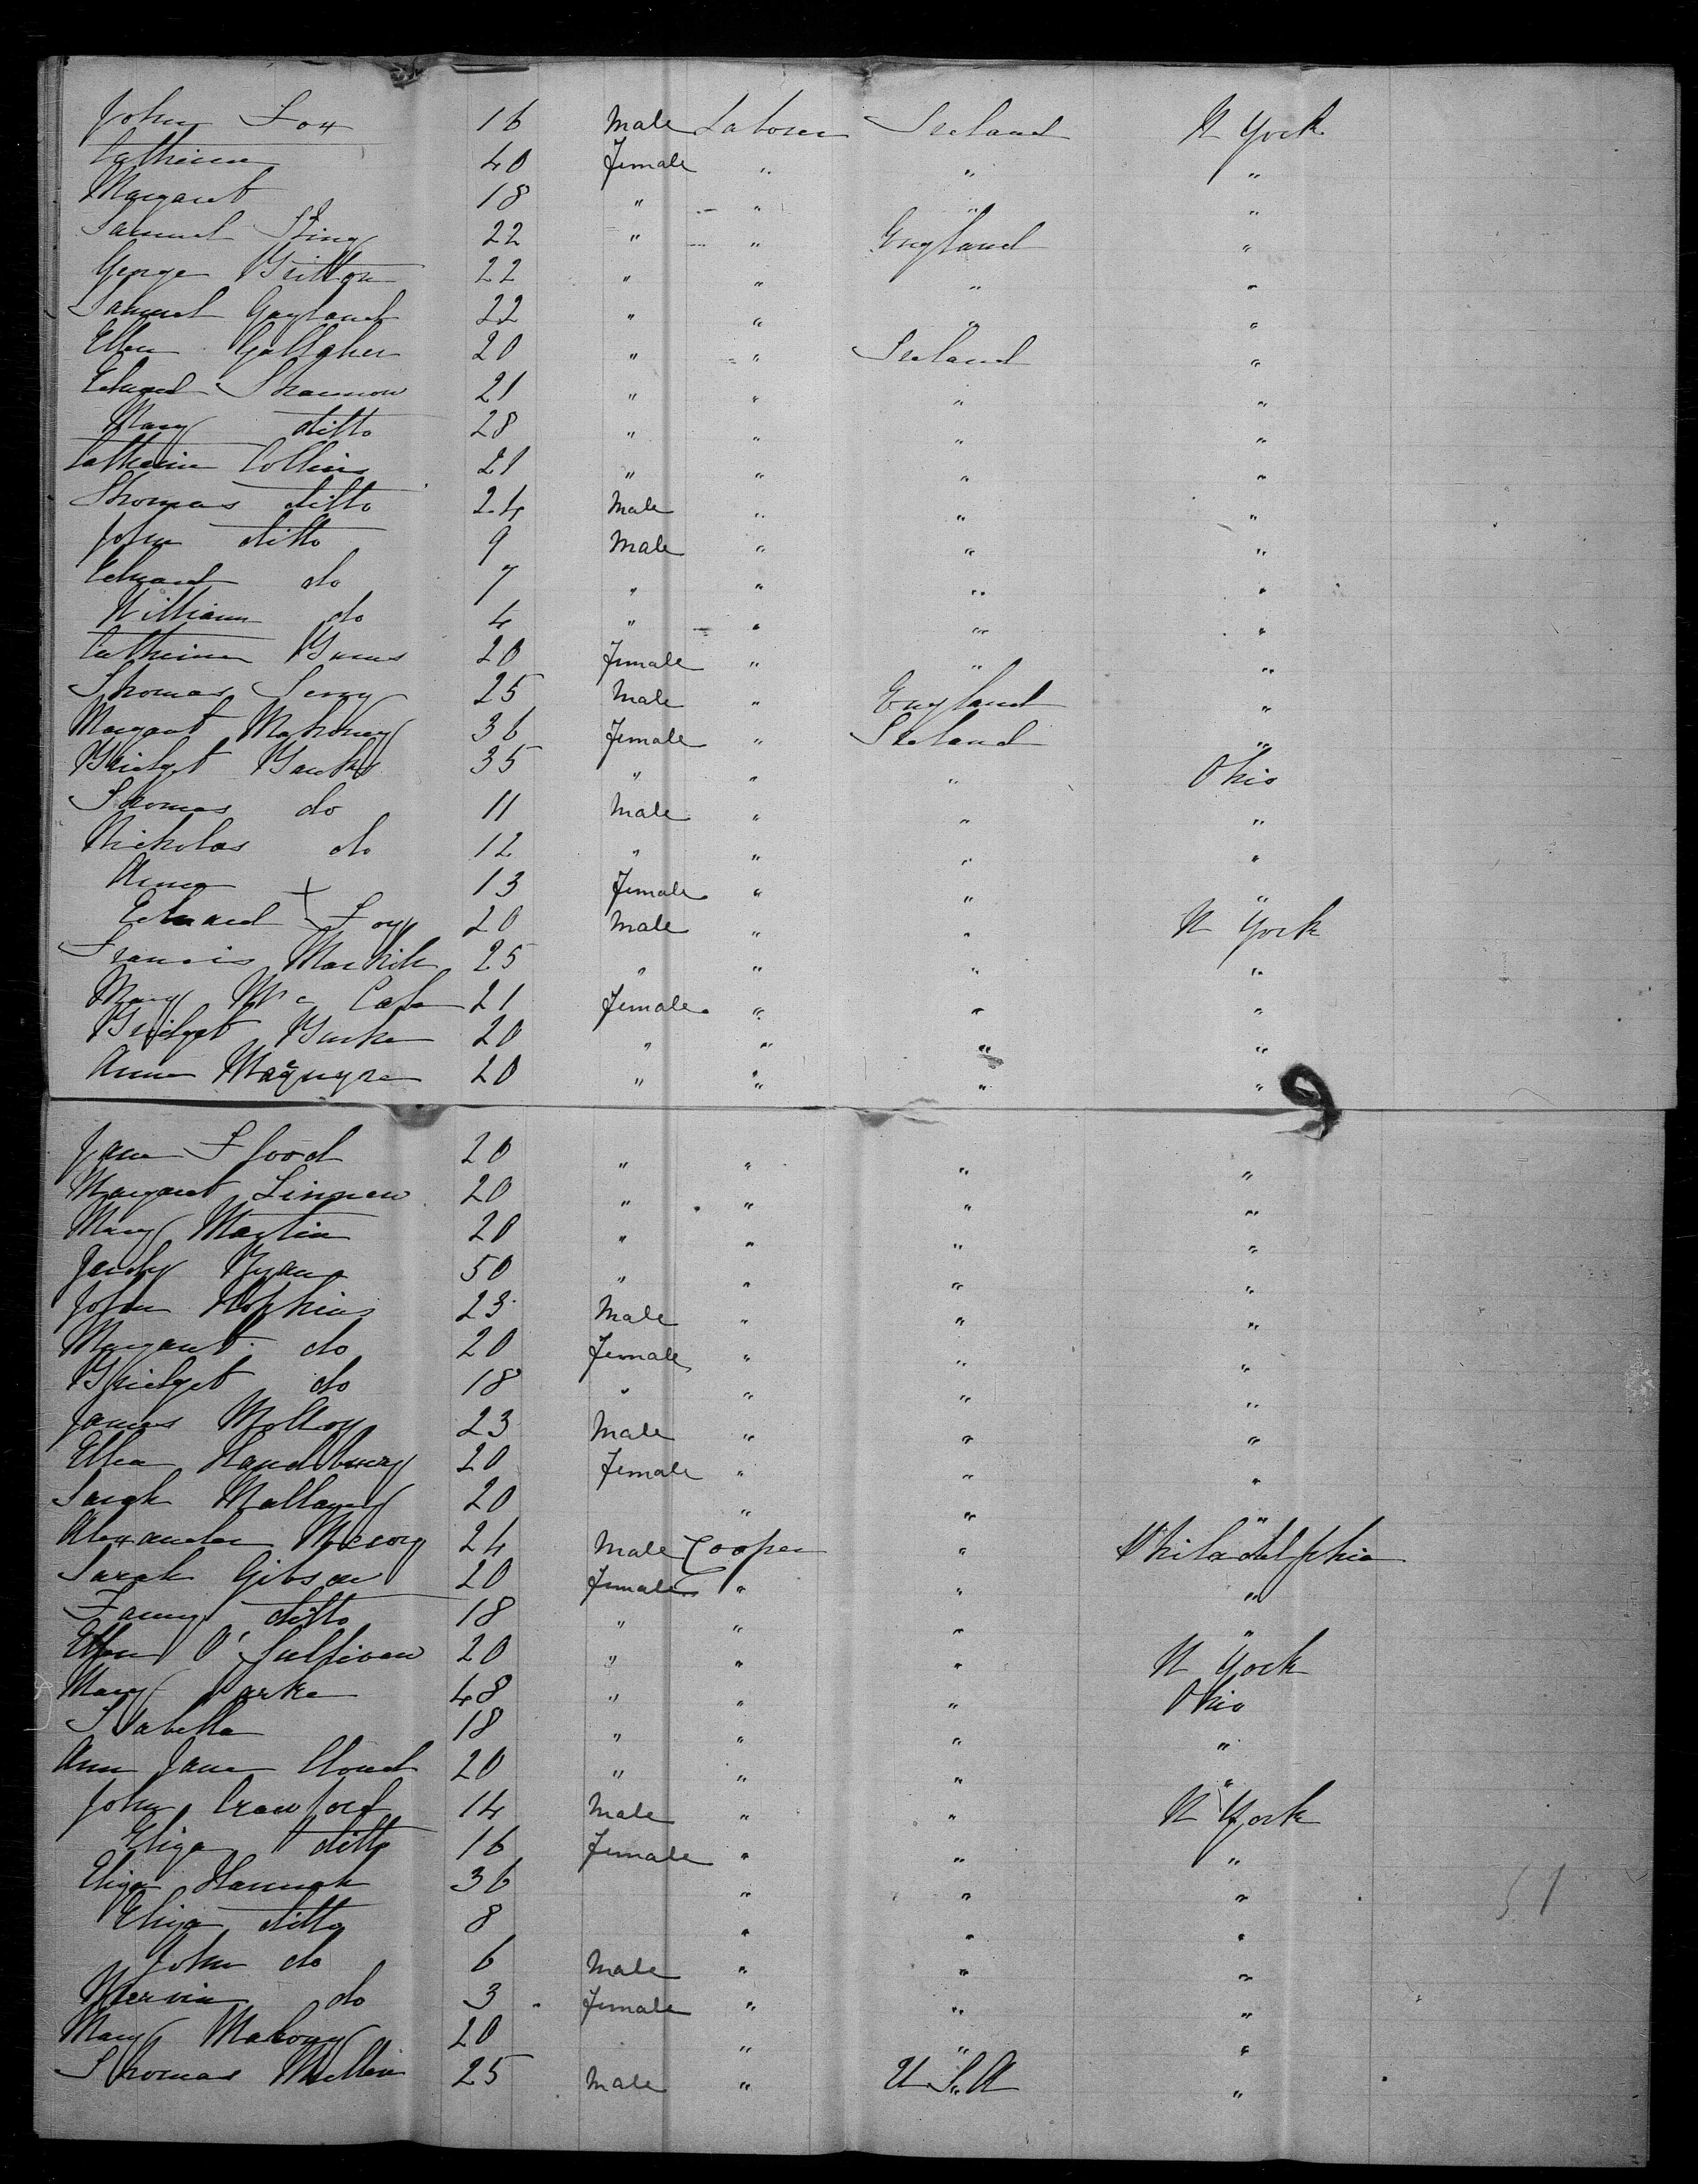 John Fox 16 Male Laborer Ireland N York
Catherine 40 Female " " "
Margaret 18 " " " "
Samuel 22 " " England "
George Britton 22 " " " "
Samuel 22 " " " "
Ellen Gallgher 20 " " Ireland "
Edward Shannon 21 " " " "
Mary ditto 28 " " " "
Catherine Collins 21 " " " "
Thomas ditto 24 Male " " "
John ditto 9 Male " " "
Edward do 7 " " " "
William do 4 " " " "
Catherine Burns 20 Female " " "
Thomas 25 Male " England "
Margaret Mahoney 36 Female " Ireland "
Bridget 35 " " " Ohio
Thomas do 11 Male " " "
Nicholas do 12 " " " "
Anna + 13 Female " " "
Edward Foy 20 Male " " N York
Francis 25 " " " "
Mary Mc 21 Female " " "
Bridget Burke 20 " " " "
Anne Maguyre 20 " " " "
9
Jane Flood 20 " " " "
Margaret Linnen 20 " " " "
Mary Martin 20 " " " "
Judy Ryan 50 " " " "
John Hopkins 23 Male " " "
Margaret do 20 Female " " "
Bridget do 18 " " " "
James Molloy 23 Male " " "
Ellen 20 Female " " "
Sarah 20 " " "
Alexander 24 Male Cooper " Philadelphia
Sarah Gibson 20 Female " " "
Fanny ditto 18 " " " "
Ellen O'Sullivan 20 " " " N York
Mary 48 " " " Ohio
Isabella 18 " " " "
Ann Jane 20 " " " "
John Crawford 14 Male " " N York
Eliza ditto 16 Female " " "
Eliza Hannah 36 " " "
Eliza ditto 8 " " "
John do 6 Male " " "
do 3 Female " " "
Mary Mahony 20 " " "
Thomas Mullin 25 Male " U.S.A "
51